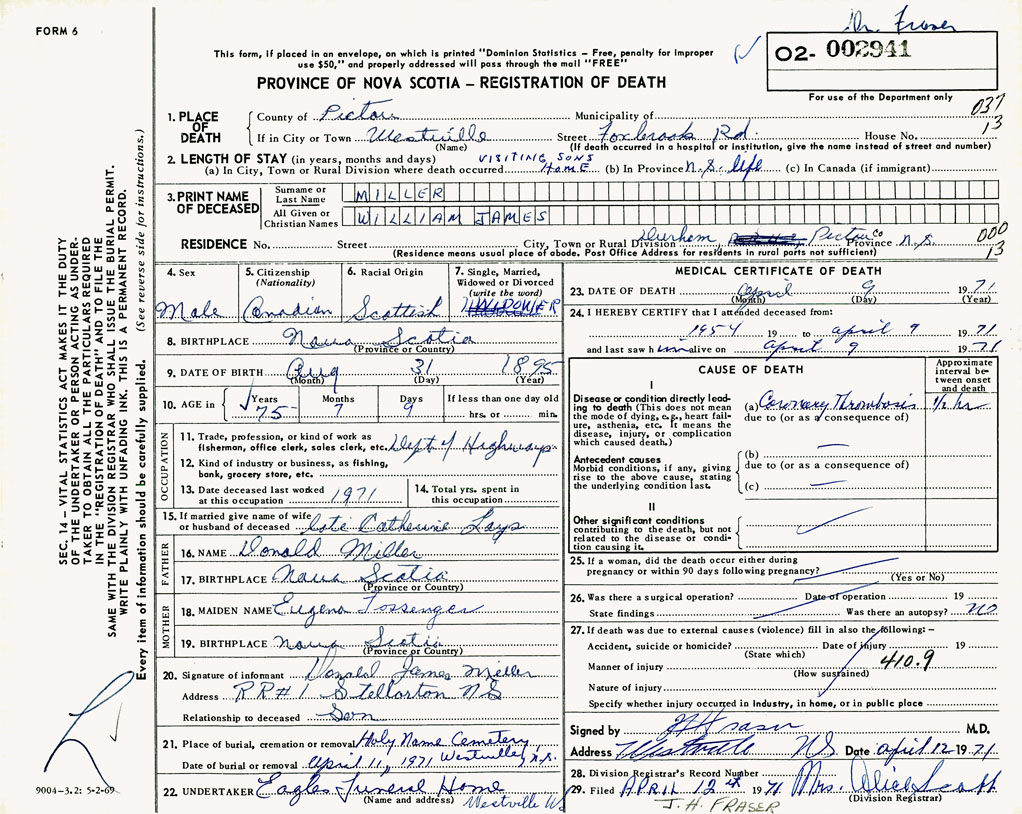 FORM 6
Dr. Fraser
This form, if placed in an envelope, on which is printed "Dominion Statistics – Free, penalty for improper
use $50," and properly addressed will pass through the mail "FREE"
02- 002941
PROVINCE OF NOVA SCOTIA – REGISTRATION OF DEATH
For use of the Department only
037
13
1. PLACE OF DEATH
County of Pictou Municipality of
If in City or Town Westville Street Foxbrook Rd. House No.
(Name) (If death occurred in a hospital or institution, give the name instead of street and number)
2. LENGTH OF STAY (in years, months and days) VISITING SONS
(a) In City, Town or Rural Division where death occurred HOME (b) In Province N.S. life (c) In Canada (if immigrant)
3. PRINT NAME OF DECEASED
Surname or Last Name MILLER
All Given or Christian Names WILLIAM JAMES
RESIDENCE No. Street City, Town or Rural Division Durham Pictou Co Province N.S.
000
13
(Residence means usual place of abode. Post Office Address for residents in rural parts not sufficient)
4. Sex
Male
5. Citizenship
(Nationality)
Canadian
6. Racial Origin
Scottish
7. Single, Married,
Widowed or Divorced
(write the word)
WIDOWER
8. BIRTHPLACE Nova Scotia
(Province or Country)
9. DATE OF BIRTH Aug 31 1895
(Month) (Day) (Year)
10. AGE in Years Months Days If less than one day old
75 7 9 hrs. or min.
OCCUPATION
11. Trade, profession, or kind of work as
fisherman, office clerk, sales clerk, etc. Dept of Highways
12. Kind of industry or business, as fishing,
bank, grocery store, etc.
13. Date deceased last worked
at this occupation 1971
14. Total yrs. spent in
this occupation
15. If married give name of wife
or husband of deceased Catherine
FATHER
16. NAME Donald Miller
17. BIRTHPLACE Nova Scotia
(Province or Country)
MOTHER
18. MAIDEN NAME Eugena
19. BIRTHPLACE Nova Scotia
(Province or Country)
20. Signature of informant Donald James Miller
Address RR#1 Stellarton NS
Relationship to deceased Son
21. Place of burial, cremation or removal Holy Name Cemetery,
Westville, N.S.
Date of burial or removal April 11, 1971
22. UNDERTAKER Eagles Funeral Home
(Name and address) Westville NS
MEDICAL CERTIFICATE OF DEATH
23. DATE OF DEATH April 9 1971
(Month) (Day) (Year)
24. I HEREBY CERTIFY that I attended deceased from:
1954 19 to april 9 1971
and last saw him alive on april 9 1971
CAUSE OF DEATH
Approximate
interval be-
tween onset
and death
I
Disease or condition directly lead-
ing to death (This does not mean
the mode of dying, e.g., heart fail-
ure, asthenia, etc. It means the
disease, injury, or complication
which caused death.)
(a) Coronary Thrombosis 1/2 hr
due to (or as a consequence of)
Antecedent causes
Morbid conditions, if any, giving
rise to the above cause, stating
the underlying condition last.
(b)
due to (or as a consequence of)
(c)
II
Other significant conditions
contributing to the death, but not
related to the disease or condi-
tion causing it.
25. If a woman, did the death occur either during
pregnancy or within 90 days following pregnancy?
(Yes or No)
26. Was there a surgical operation? Date of operation 19
State findings Was there an autopsy? NO
27. If death was due to external causes (violence) fill in also the following: –
Accident, suicide or homicide? Date of injury 19
(State which)
Manner of injury 410.9
(How sustained)
Nature of injury
Specify whether injury occurred in industry, in home, or in public place
Signed by JH Fraser M.D.
Address Westville NS Date april 12 1971
28. Division Registrar's Record Number
29. Filed APRIL 12th 1971 Mrs. Alice Scott
(Division Registrar)
J. H. FRASER
SEC. 14 – VITAL STATISTICS ACT MAKES IT THE DUTY
OF THE UNDERTAKER OR PERSON ACTING AS UNDER-
TAKER TO OBTAIN ALL THE PARTICULARS REQUIRED
IN THE "REGISTRATION OF DEATH" AND TO FILE THE
SAME WITH THE DIVISION REGISTRAR WHO SHALL ISSUE THE BURIAL PERMIT.
WRITE PLAINLY WITH UNFADING INK. THIS IS A PERMANENT RECORD.
Every item of information should be carefully supplied. (See reverse side for instructions.)
9004-3.2: 5-2-69